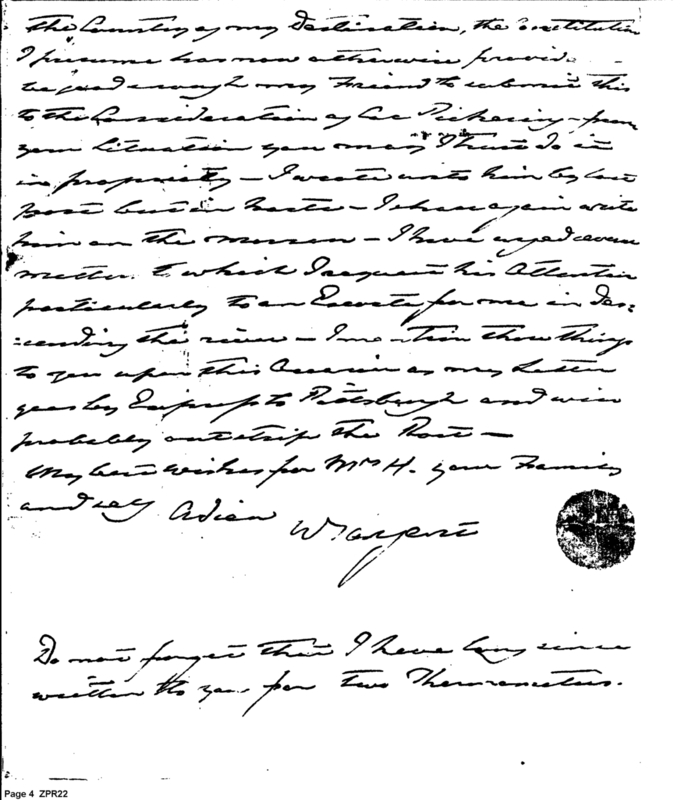 the Country of my Destination, the Constitution
I presume has now otherwise provid
be good enough my Friend to submit this
to the Consideration of Col Pickering – from
your Situation you may I trust do it
in propriety – I wrote unto him by last
post but in haste – I shall again write
him on the morrow – I have urged
matter to which I request his Attention
particularly to an Escorte for me in des=
=cending the river – I mention those things
to you upon this Occasion as my Letter
goes by Express to Pittsburgh and will
probably outstrip the Post –
My best wishes for Mrs H. your Family
and self Adieu
W Sargent
Do not forget that I have long since
written to you for two Thermometers.
Page 4 ZPR22